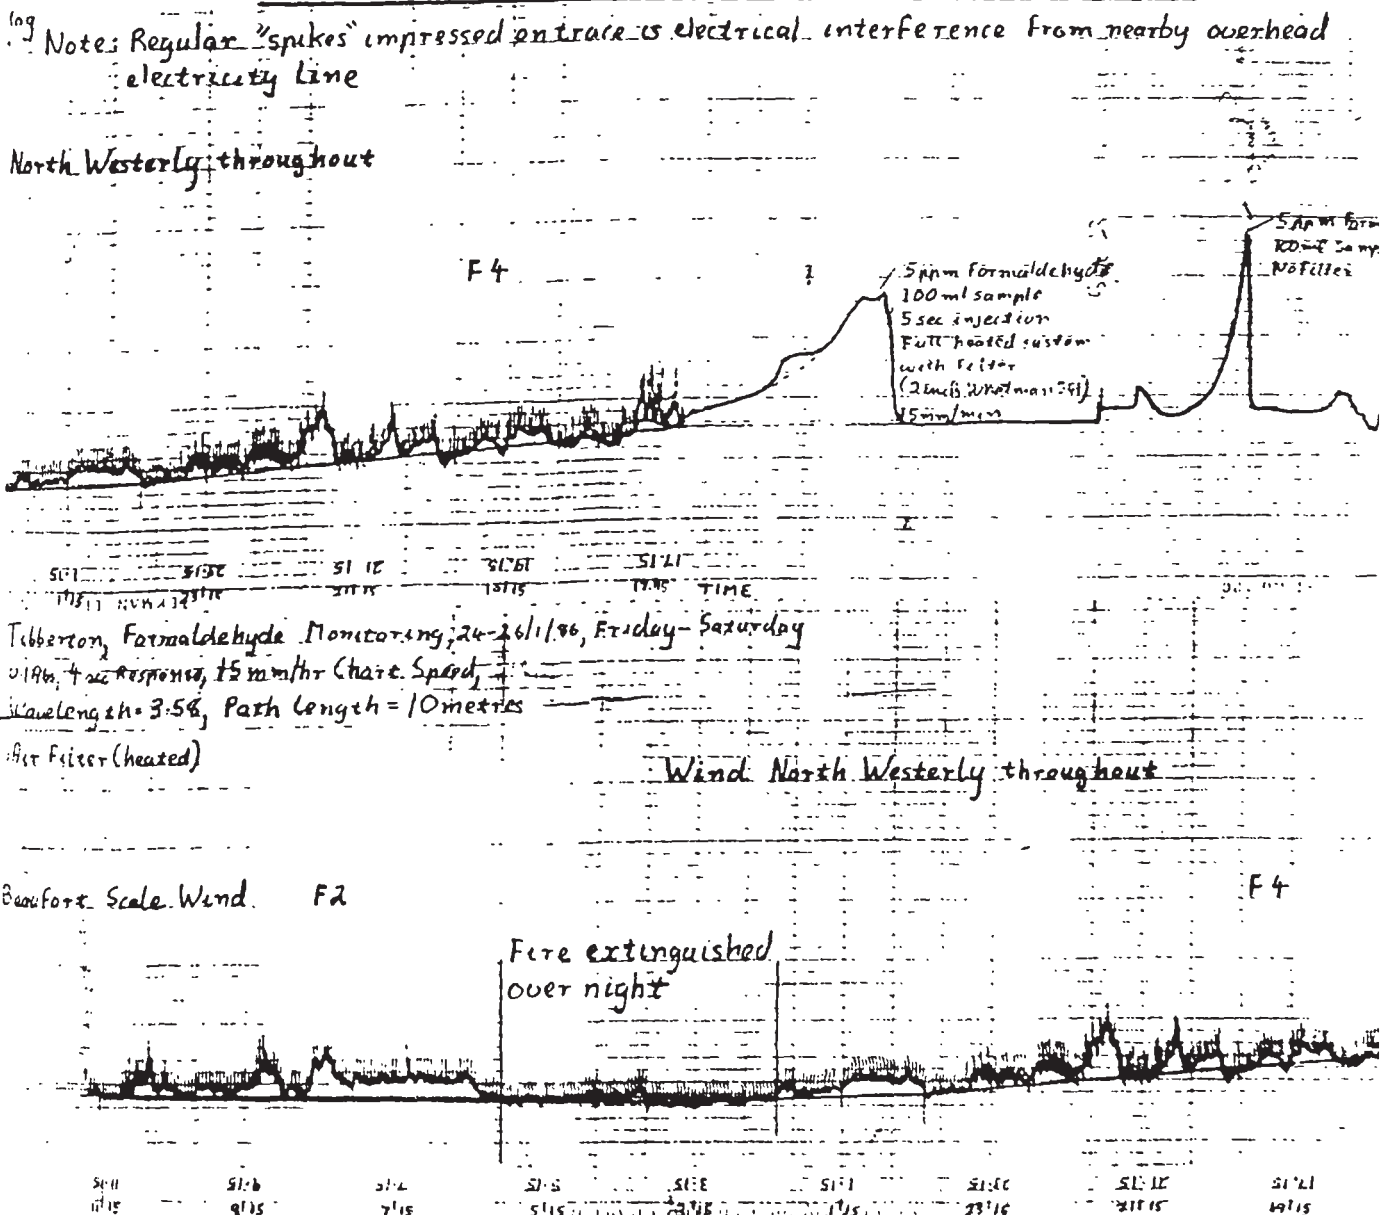 Note: Regular "spikes" impressed on trace is electrical interference from nearby overhead
electricity Line
North Westerly throughout
F4
5ppm Formaldehyde
100 ml sample
5 sec injection
Full heated system
with Filter
15mm/min
5ppm
No Filter
21 15
19.15
17.15
TIME
Tibberton, Formaldehyde Monitoring, 24-26/1/86, Friday - Saturday
Response, 15 mm/hr Chart Speed,
Wavelength = 3.58, Path Length = 10 metres
Air Filter (heated)
Wind North Westerly throughout
Beaufort Scale Wind F2
F4
Fire extinguished
over night
11.15 9.15 7.15 5.15 3.15 1.15 23.15 21.15 19.15